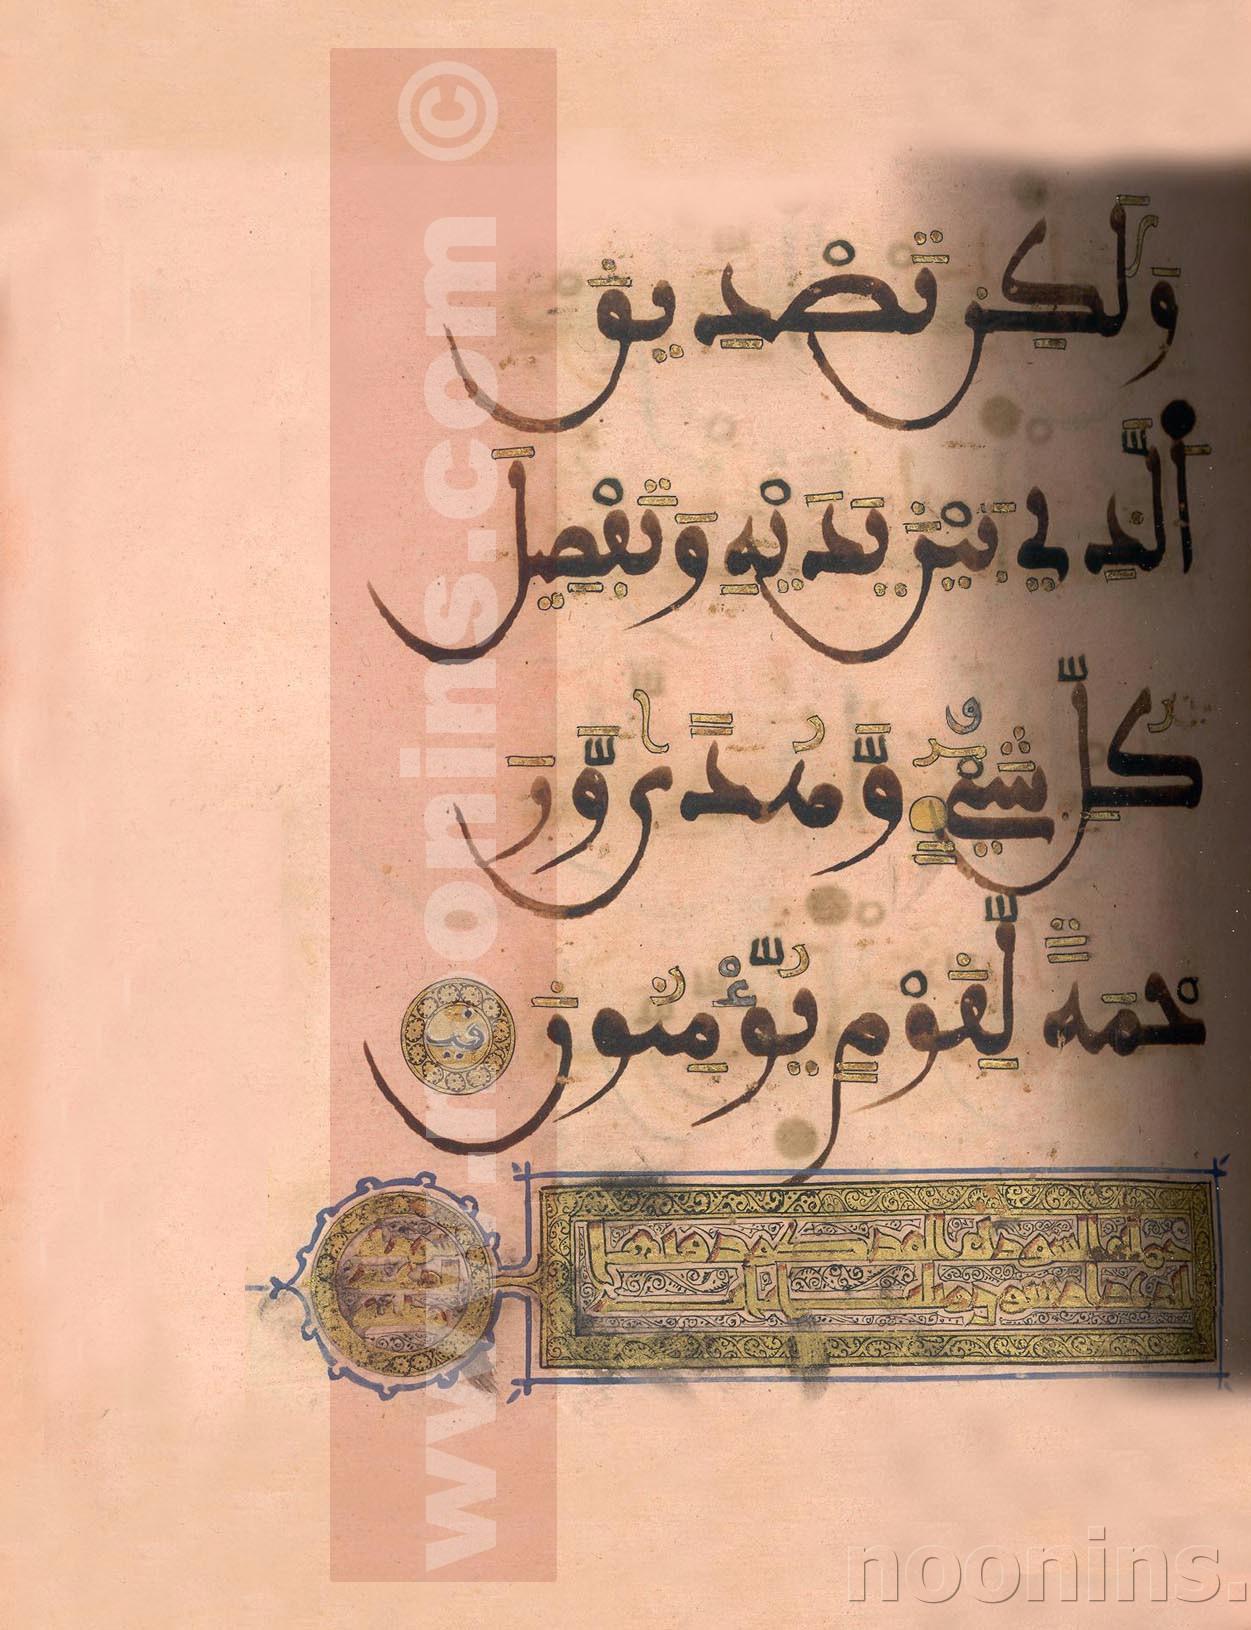 وَلَٰكِن تَصْدِيقَ
ٱلَّذِي بَيْنَ يَدَيْهِ وَتَفْصِيلَ
كُلِّ شَيْءٍ وَّهُدًى وَّرَ
حْمَةً لِّقَوْمٍ يُّؤْمِنُونَ
www.noonins.com ©
noonins.